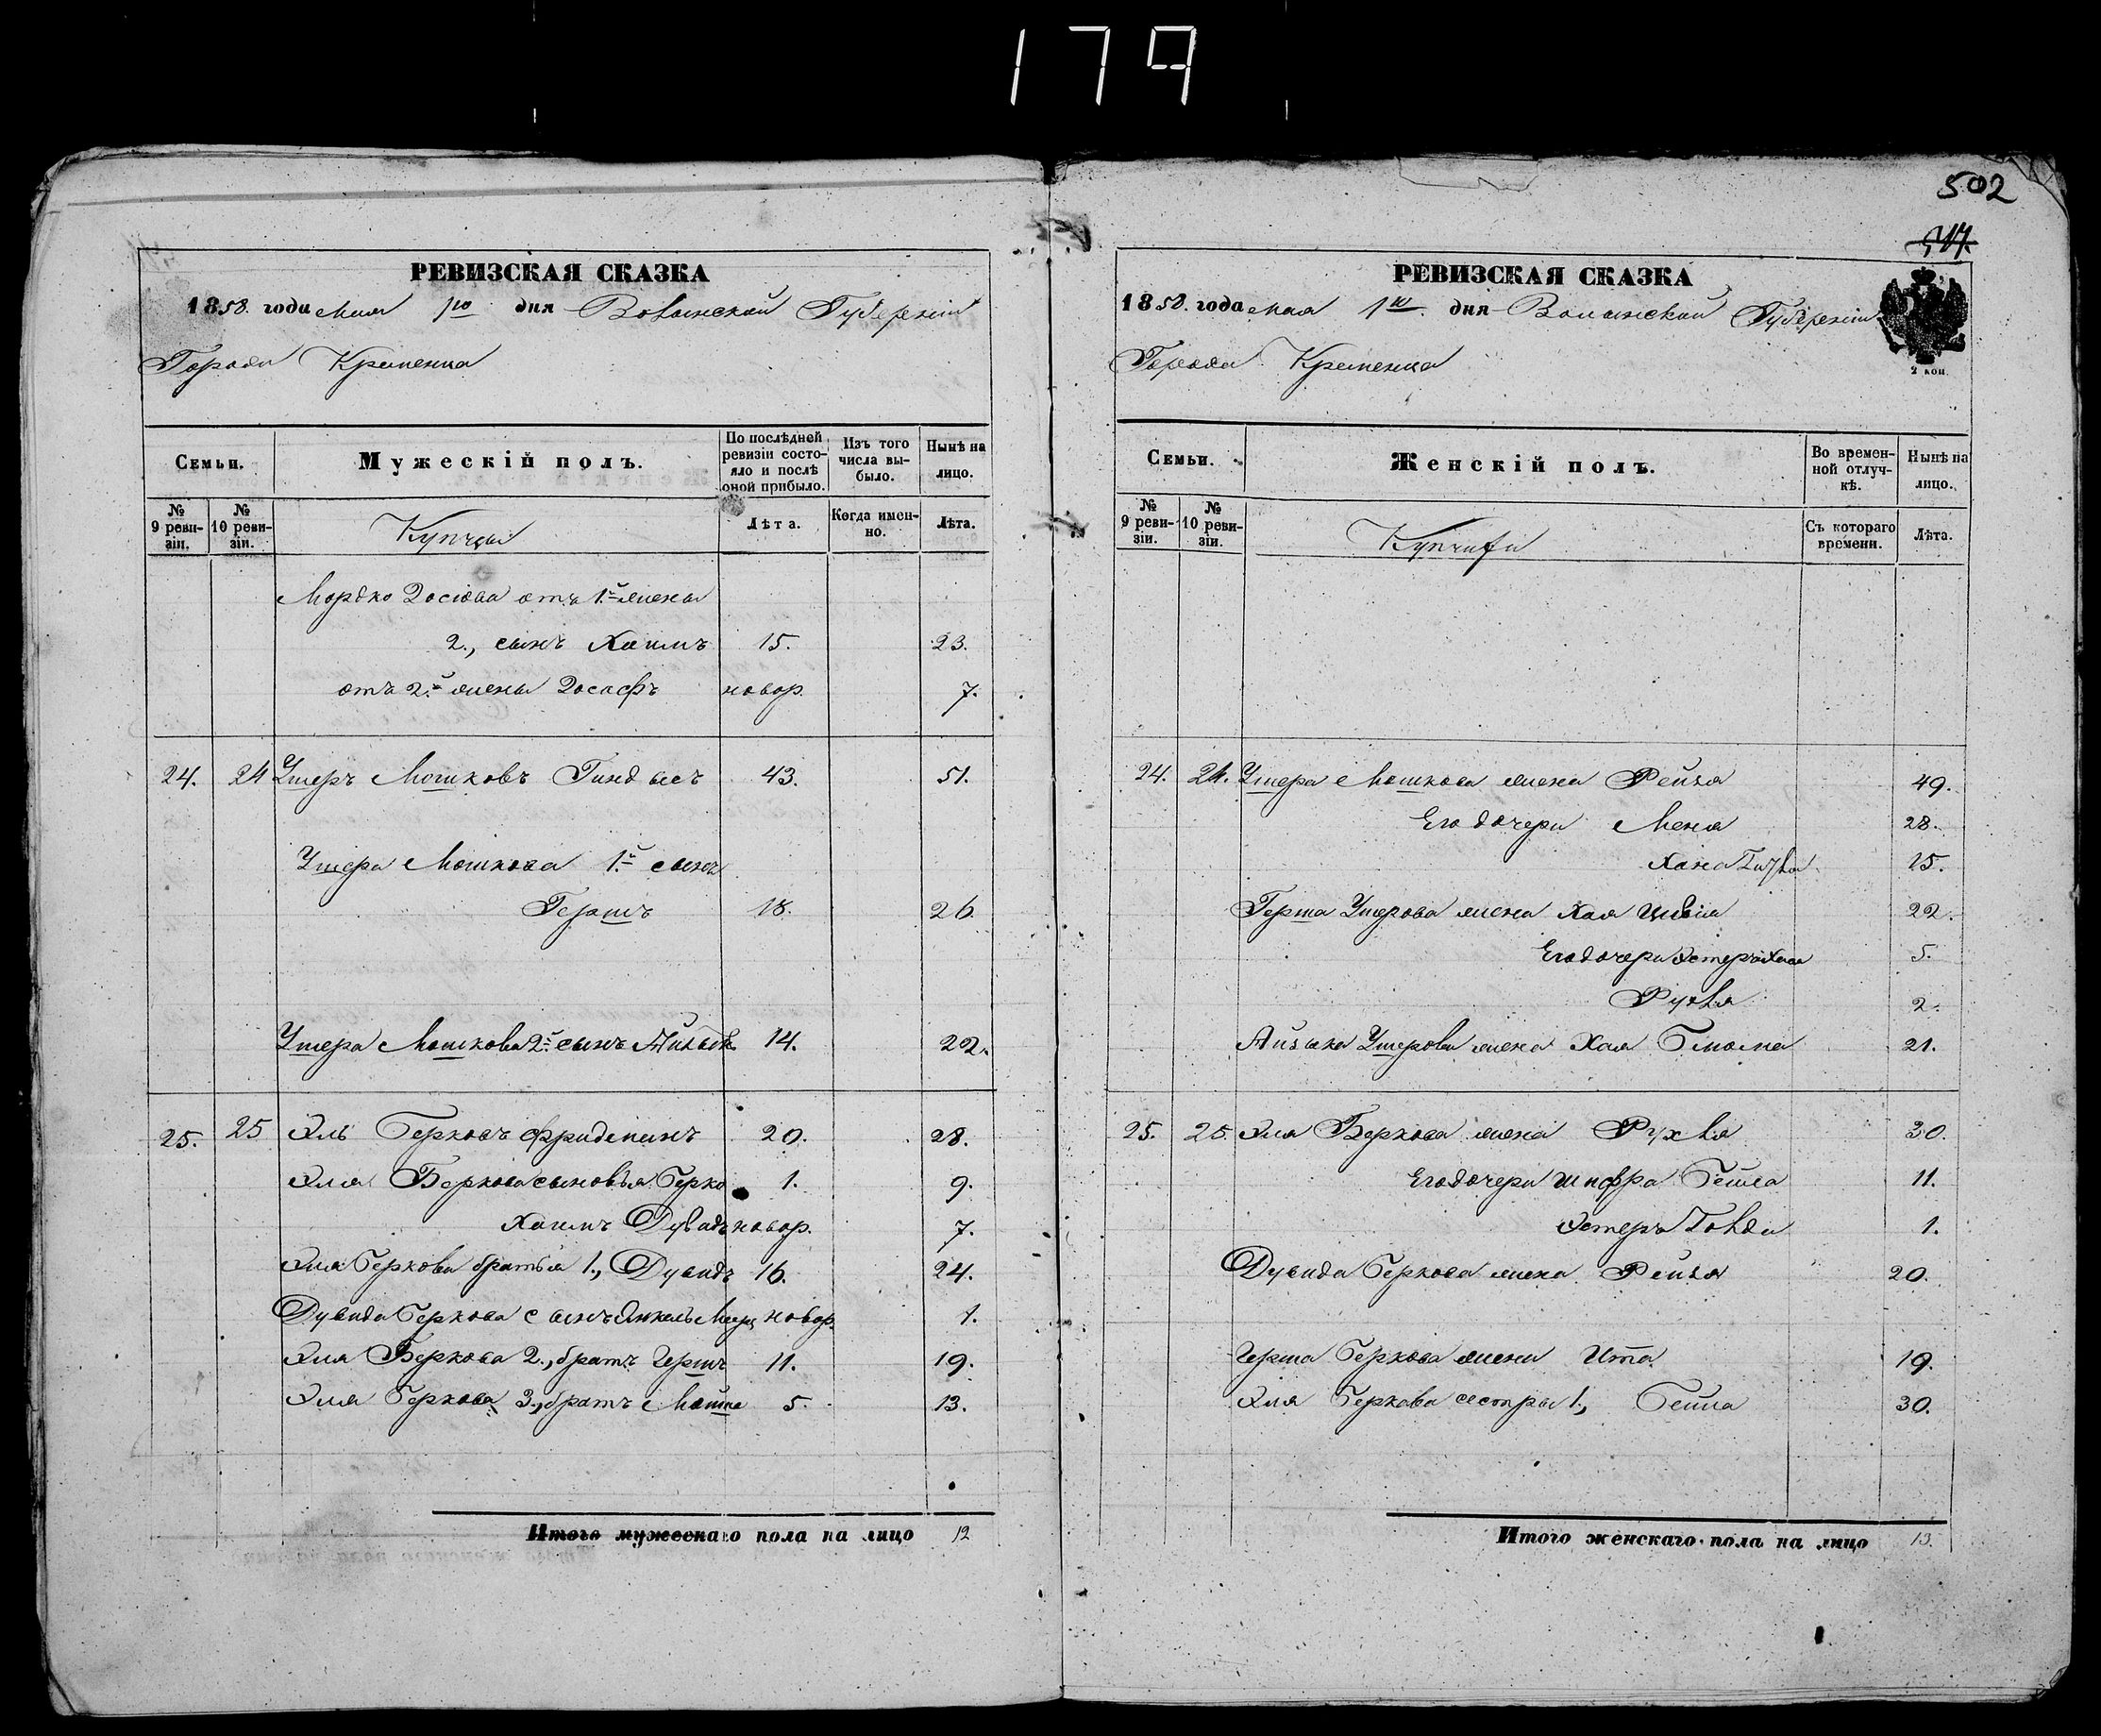 179
502
РЕВИЗСКАЯ СКАЗКА
1858. года мая 1го дня Волынской Губерніи
Города Кременца
Семьи.
Мужескій полъ.
По послѣдней ревизіи состояло и послѣ оной прибыло.
Изъ того числа выбыло.
Нынѣ на лицо.
№ 9 ревизіи.
№ 10 ревизіи.
Купцы
Лѣта.
Когда именно.
Лѣта.
Мордко Іосіова отъ 1.й жены
2., сынъ Хаимъ 15. 23.
отъ 2.й жены Іосифъ новор. 7.
24. 24 Ушеръ Мошковъ 43. 51.
Ушера Мошкова 1.й сынъ
Гершъ 18. 26.
Ушера Мошкова 2.й сынъ 14. 22.
25. 25 Эль Берковъ 20. 28.
Эля Беркова сыновья Берко 1. 9.
Хаимъ Дувидъ новор. 7.
Эля Беркова братья 1., Дувидъ 16. 24.
Дувида Беркова сынъ новор. 1.
Эля Беркова 2., братъ Гершъ 11. 19.
Эля Беркова 3., братъ Мошко 5. 13.
Итого мужескаго пола на лицо 12
РЕВИЗСКАЯ СКАЗКА
1858. года мая 1го дня Волынской Губерніи
Города Кременца
2 коп.
Семьи.
Женскій полъ.
Во временной отлучкѣ.
Нынѣ на лицо.
№ 9 ревизіи.
№ 10 ревизіи.
Съ котораго времени.
Лѣта.
24. 24. Ушера Мошкова жена Рейзя 49.
Его дочери Меня 28.
Хана 15.
Герша Ушерова жена Хая Цивія 22.
Его дочери Эстеръ Хая 5.
Рухля 2.
Айзика Ушерова жена Хая 21.
25. 25. Эля Беркова жена Рухля 30.
Его дочери Шифра Бейла 11.
Эстеръ Голда 1.
Дувида Беркова жена Рейзя 20.
Герша Беркова жена Ита 19.
Эля Беркова сестры 1., Бейла 30.
Итого женскаго пола на лицо 13.